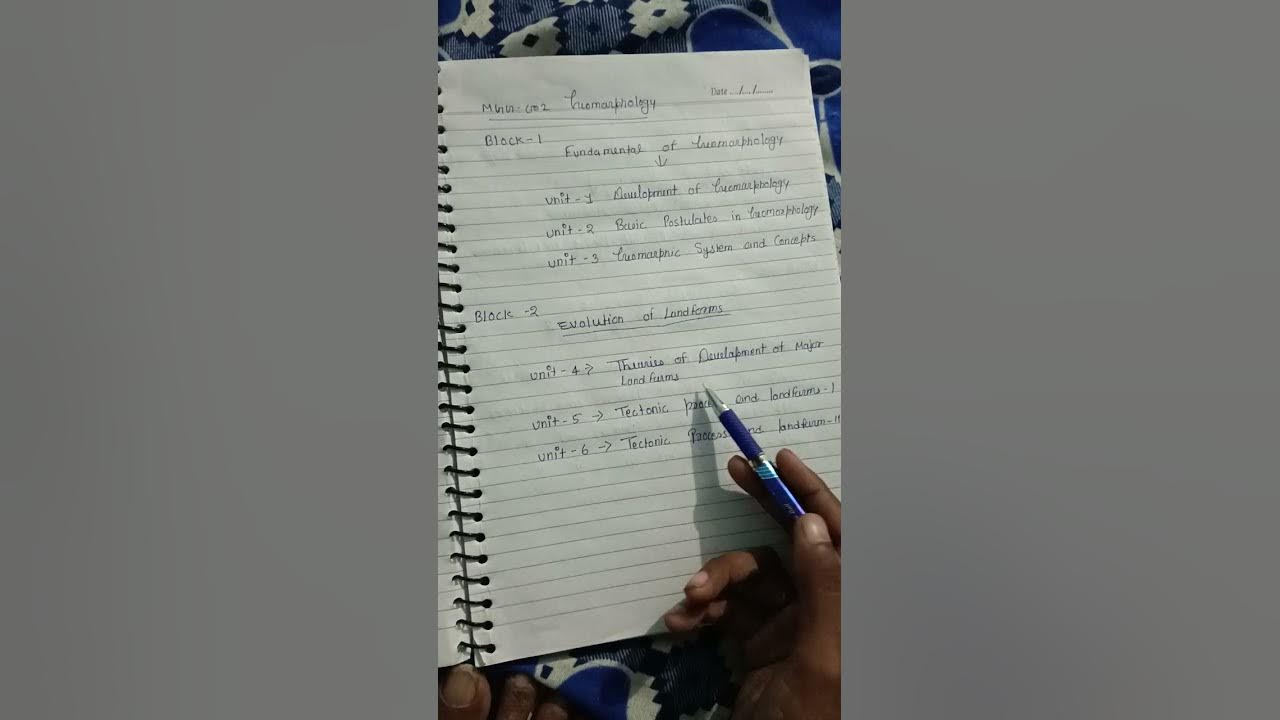 Date ..../..../.........
MGG-002 Geomorphology
Block-1
Fundamental of Geomorphology
↓
unit-1 Development of Geomorphology
unit-2 Basic Postulates in Geomorphology
unit-3 Geomorphic System and Concepts
Block-2
Evolution of Landforms
unit-4 → Theories of Development of Major
Landforms
unit-5 → Tectonic and landforms-I
unit-6 → Tectonic Process landform-II